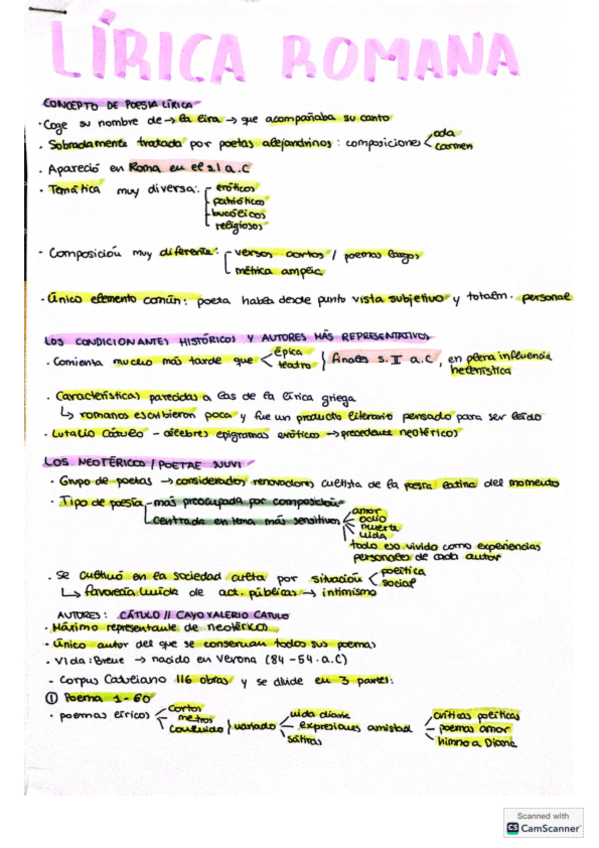 LÍRICA ROMANA
CONCEPTO DE POESIA LÍRICA
· Coge su nombre de → la lira → que acompañaba su canto
· Sobradamente tratada por poetas alejandrinos: composiciones < oda
carmen
· Apareció en Roma en el s I a.C
· Temática muy diversa: eróticos
patrióticos
bucólicos
religiosos
· Composición muy diferente: versos cortos / poemas largos
métrica amplia
· Único elemento común: poeta habla desde punto vista subjetivo y totalm. personal
LOS CONDICIONANTES HISTÓRICOS Y AUTORES MÁS REPRESENTATIVOS
· Comienza mucho más tarde que < épica
teatro } finales s. II a.C, en plena influencia
helenística
· Características parecidas a las de la lírica griega
↳ romanos escribieron poca y fue un producto literario pensado para ser leído
· Lutacio Cátulo - célebres epigramas eróticos → precedente neotéricos
LOS NEOTÉRICOS / POETAE NUVI
· Grupo de poetas → considerados renovadores cultista de la poesía latina del momento
· Tipo de poesía - más preocupada por composición
centrada en tema más sensitivos < amor
ocio
muerte
vida
todo eso vivido como experiencias
personales de cada autor
· Se cultivó en la sociedad culta por situación < política
social
↳ favorecía huida de act. públicas → intimismo
AUTORES: CÁTULO // CAYO VALERIO CATULO
· Máximo representante de neotéricos
· Único autor del que se conservan todos sus poemas
· Vida: Breve → nacido en Verona (84-54 a.C)
· Corpus Catuliano 116 obras y se divide en 3 partes:
① Poema 1-60
· poemas líricos < cortos
metros
contenido } variado < vida diaria
expresiones amistad
sátiras < críticas políticas
poemas amor
himno a Diana
Scanned with
CS CamScanner